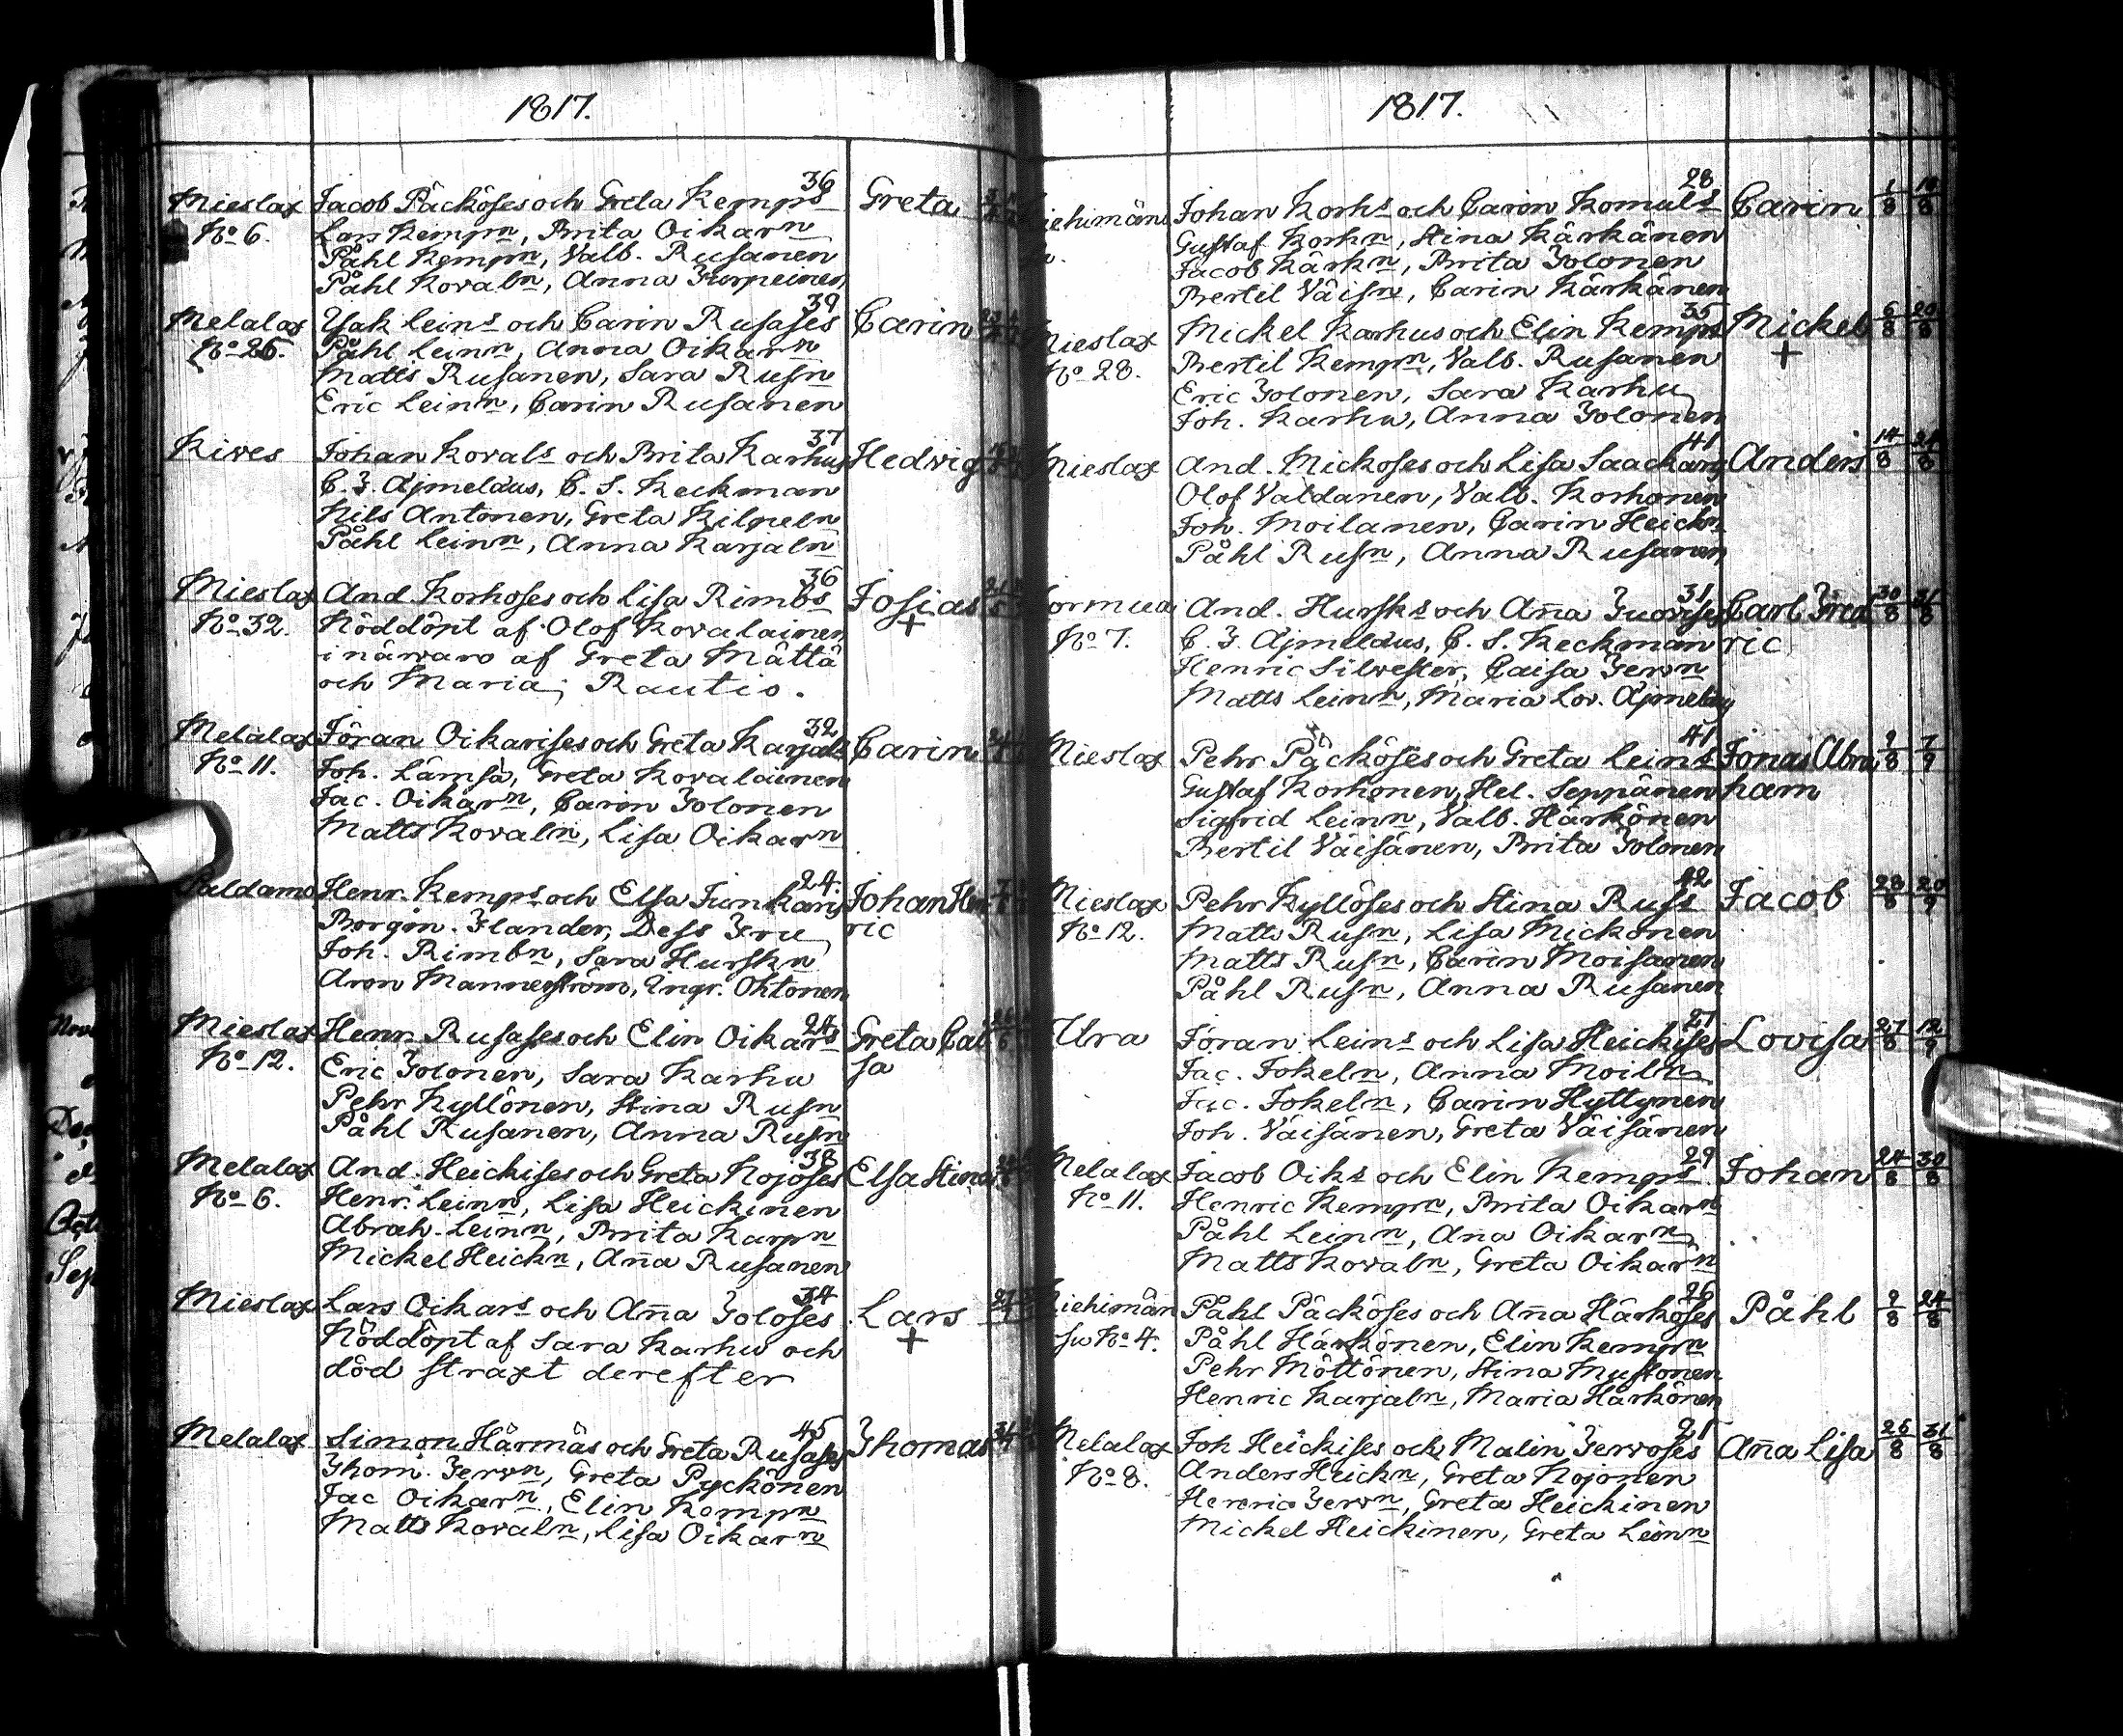 1817.
36
Mieslax Jacob Päcköses och Greta Kemps Greta
No 6. Lars Kempn, Brita Oikarn
Påhl Kempn, Valb. Rusanen
Påhl Kovaln, Anna Turpeinen
39
Melalax Isak Leins och Carin Rusases Carin
No 26. Påhl Leinn, Anna Oikarn
Matts Rusanen, Sara Rusn
Eric Leinn, Carin Rusanen
37
Kives Johan Kovals och Brita Karhus Hedvig
C. F. Ajmelæus, C. S. Keckman
Nils Antonen, Greta Kilpeln
Påhl Leinn, Anna Karjaln
36
Mieslax And. Korhoses och Lisa Rimbs Josias
No 32. Nöddöpt af Olof Kovalainen +
i närvaro af Greta Mättä
och Maria Rautio.
32
Melalax Jöran Oikarises och Greta Karjals Carin
No 11. Joh. Lämsä, Greta Kovalainen
Jac. Oikarn, Carin Tolonen
Matts Kovaln, Lisa Oikarn
24.
Paldamo Henr. Kemps och Elsa Junkaris Johan Hen
Borgm. Flander, Dess Fru ric
Joh. Rimbn, Sara Hurskn
Aron Mannerström, Ingr. Ohtonen
24
Mieslax Henr. Rusases och Elin Oikars Greta Cai
No 12. Eric Tolonen, Sara Karhu sa
Pehr Kyllönen, Stina Rusn
Påhl Rusanen, Anna Rusn
38
Melalax And. Heickises och Greta Kojoses Elsa Stina
No 6. Henr. Leinn, Lisa Heickinen
Abrah. Leinn, Brita Karpn
Mickel Heickn, Aña Rusanen
34
Mieslax Lars Oikars och Aña Toloses Lars
Nöddöpt af Sara Karhu och +
död straxt derefter
45
Melalax Simon Härmäs och Greta Rusases Thomas
Thom. Tervn, Greta Pyckönen
Jac Oikarn, Elin Kempn
Matts Kovaln, Lisa Oikarn
1817.
28
Johan Korhs och Carin Komuls Carin 1/8 10/8
Gustaf Korhn, Stina Kärkänen
Jacob Kärkn, Brita Tolonen
Bertil Väisn, Carin Kärkänen
35
Mieslax Mickel Karhus och Elin Kemps Mickel 6/8 20/8
No 28. Bertil Kempn, Valb. Rusanen +
Eric Tolonen, Sara Karhu
Joh. Karhu, Anna Tolonen
41
Mieslax And. Mickoses och Lisa Saackaris Anders 14/8 24/8
Olof Valdanen, Valb. Korhonen
Joh. Moilanen, Carin Heickn
Påhl Rusn, Anna Rusanen
31
Kormua And. Hursks och Aña Juovises Carl Fred 30/8 31/8
No 7. C. F. Ajmelæus, C. S. Keckman ric
Henric Silvester, Caisa Tervn
Matts Leinn, Maria Lov. Ajmelæus
41
Mieslax Pehr Päcköses och Greta Leins Jonas Abra 9/8 7/9
Gustaf Korhonen, Hel. Seppänen ham
Sigfrid Leinn, Valb. Härkönen
Bertil Väisänen, Brita Tolonen
42
Mieslax Pehr Kyllöses och Stina Russ Jacob 28/8 20/9
No 12. Matts Rusn, Lisa Mickonen
Matts Rusn, Carin Moisanen
Påhl Rusn, Anna Rusanen
27
Ura Jöran Leins och Lisa Heickises Lovisa 27/8 12/9
Jac. Jokeln, Anna Moiln
Jac. Jokeln, Carin Hyttynen
Joh. Väisänen, Greta Väisänen
29
Melalax Jacob Oiks och Elin Kemps Johan 24/8 30/8
No 11. Henric Kempn, Brita Oikarn
Påhl Leinn, Ana Oikarn
Matts Kovaln, Greta Oikarn
26
Riehimän Påhl Päcköses och Aña Härköses Påhl 9/8 24/8
su No 4. Påhl Härkönen, Elin Kempn
Pehr Möttönen, Stina Mustonen
Henric Karjaln, Maria Härkönen
21
Melalax Joh Heickises och Malin Tervoses Aña Lisa 26/8 31/8
No 8. Anders Heickn, Greta Kojonen
Henric Tervn, Greta Heickinen
Mickel Heickinen, Greta Leinn